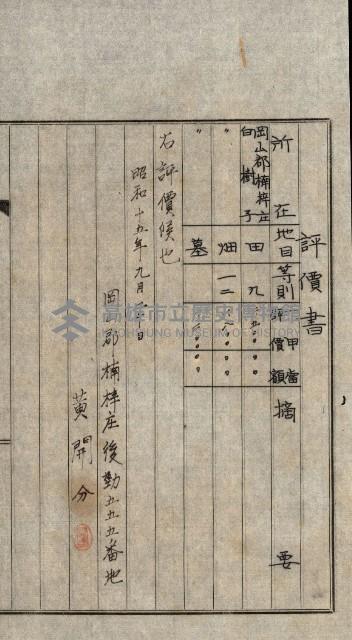 評價書
所在 地目 等則 甲當 價額 摘要
岡山郡楠梓庄
白樹子 田 九
〃 畑 一二
〃 墓
右評價候也
昭和十五年九月 日
岡山郡楠梓庄後勁五五五番地
黄開分
高雄市立歷史博物館
KAOHSIUNG MUSEUM OF HISTORY